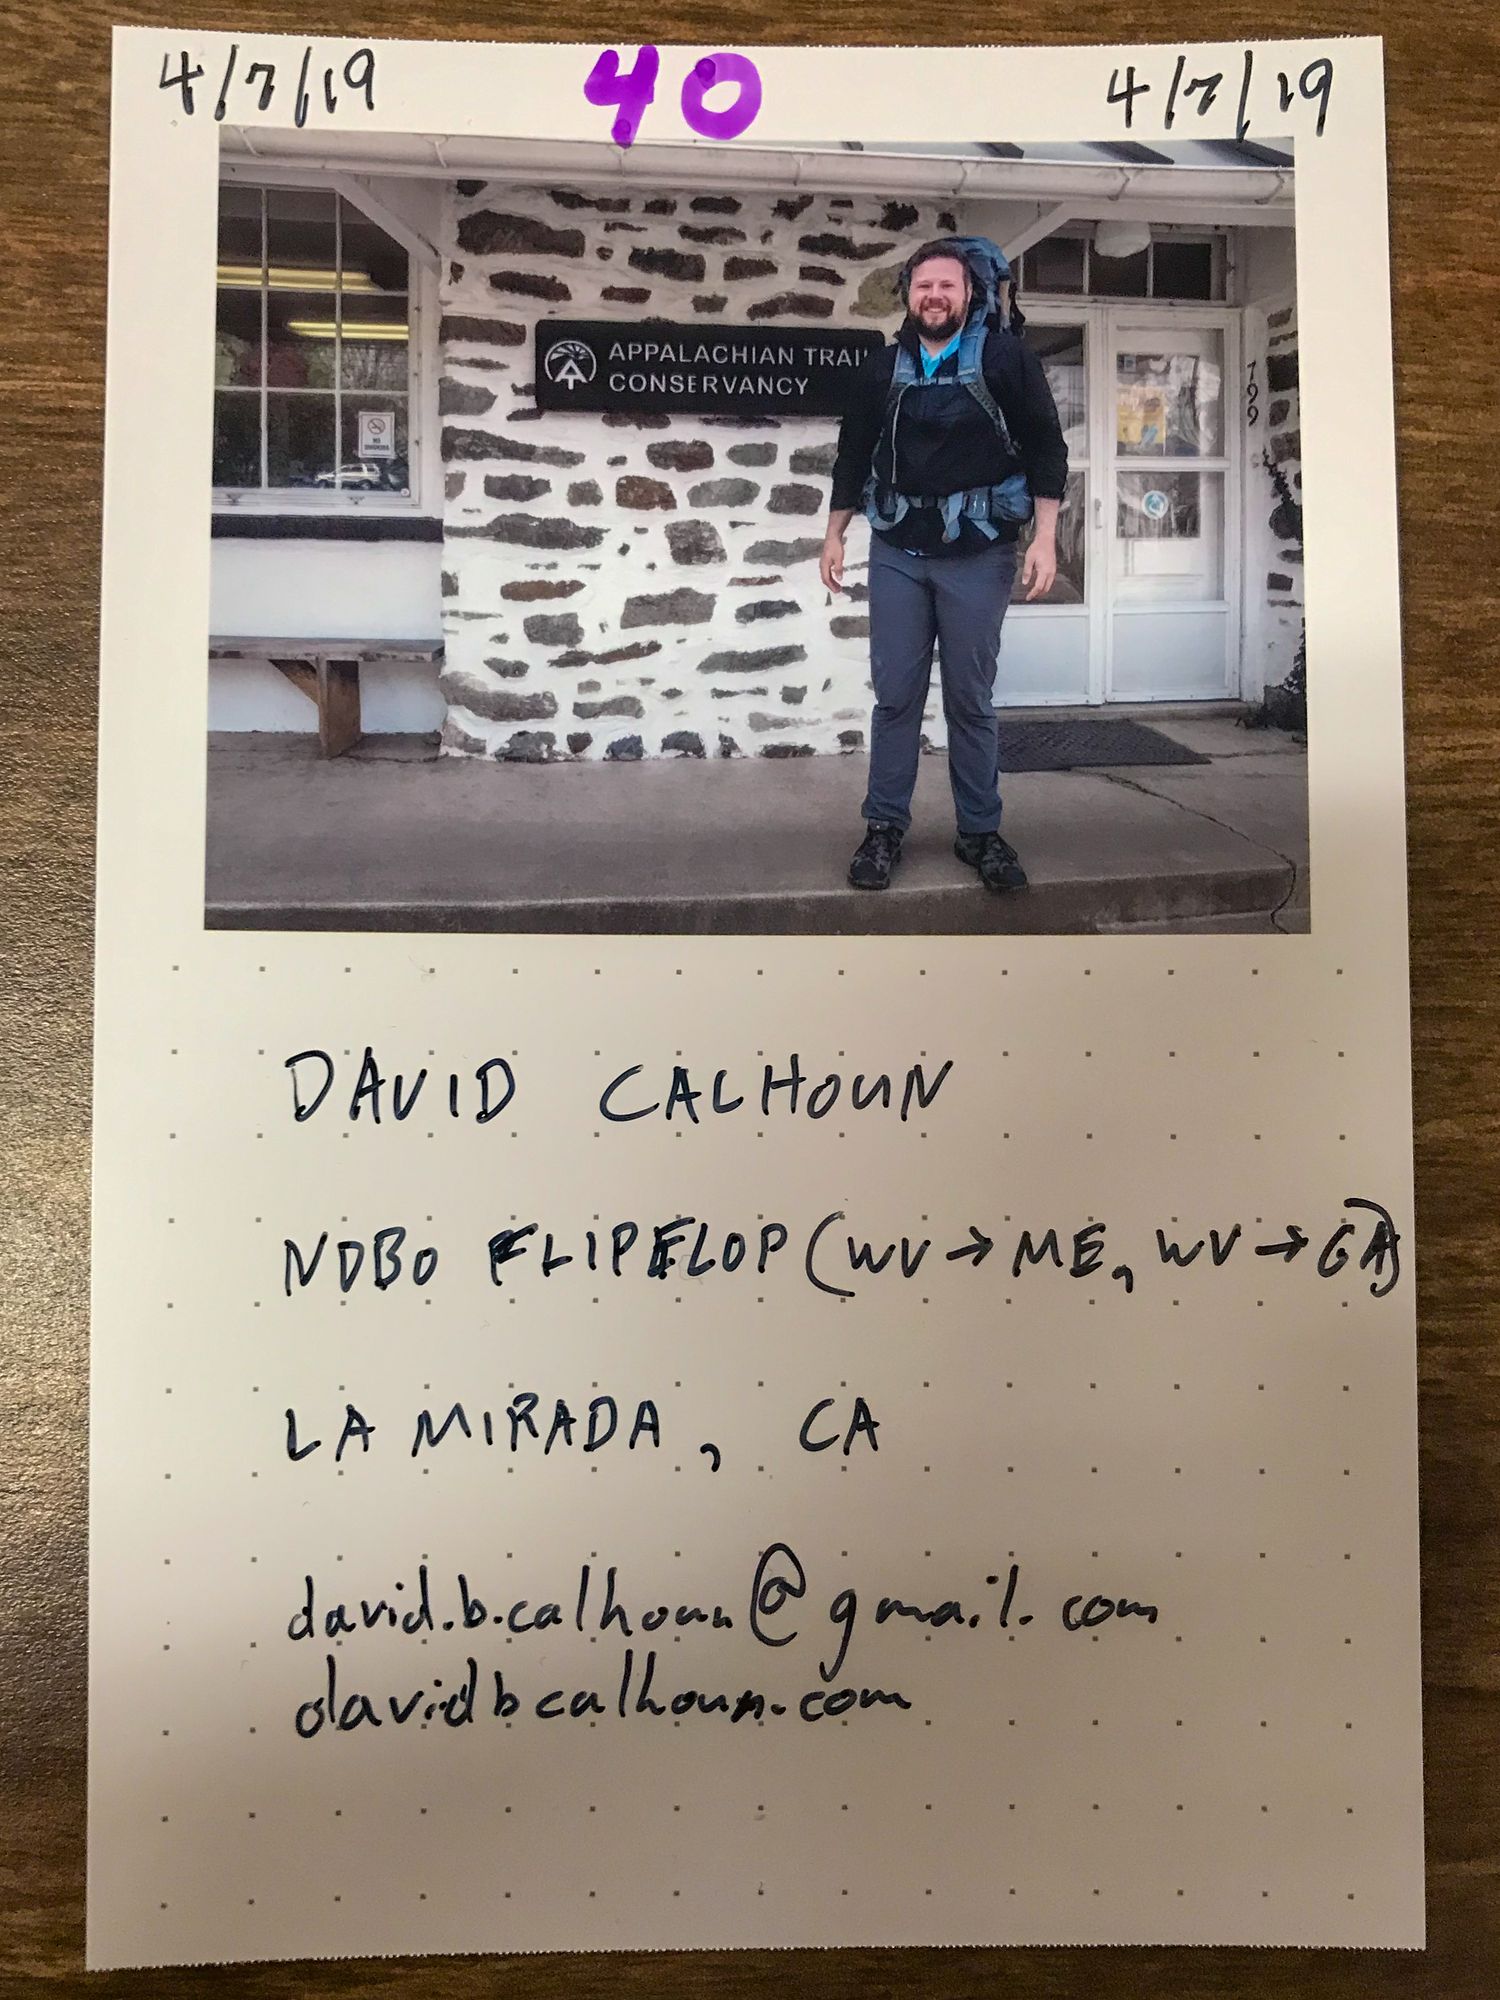 4/7/19 40 4/7/19
APPALACHIAN TRAIL
CONSERVANCY
NO
SMOKING
799
DAVID CALHOUN
NOBO FLIPFLOP (WV → ME, WV → GA)
LA MIRADA, CA
david.b.calhoun@gmail.com
davidbcalhoun.com